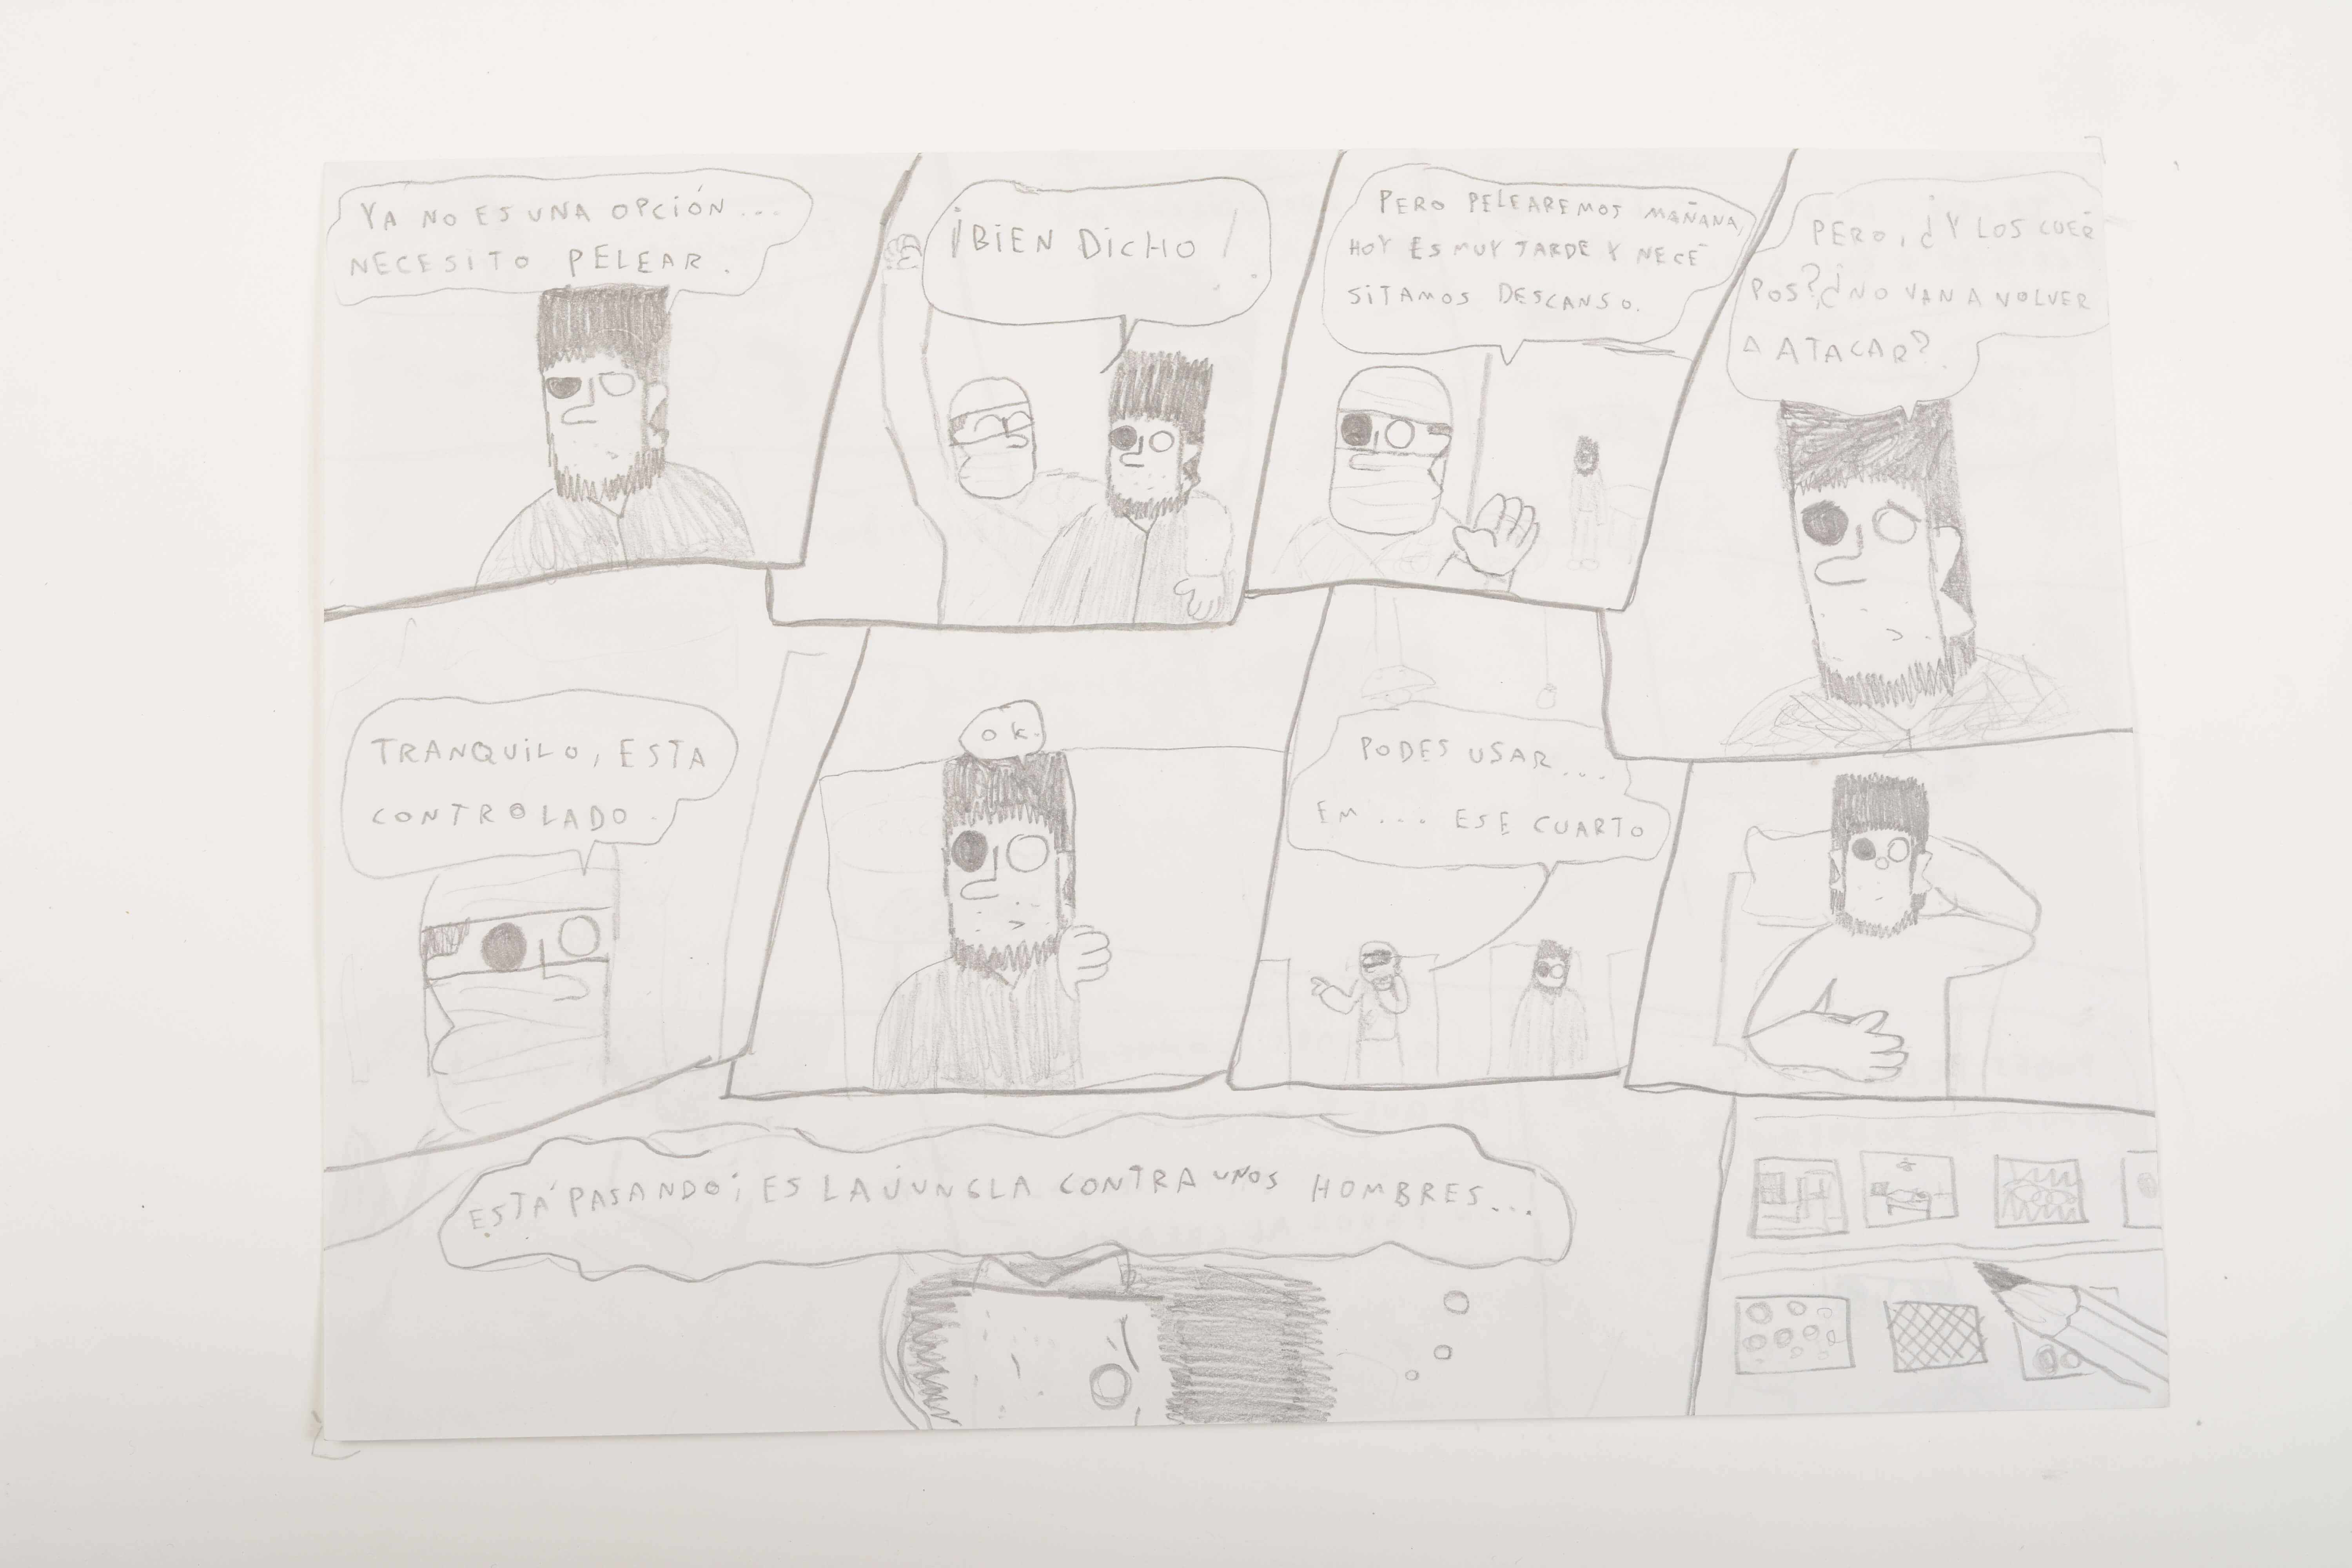 YA NO ES UNA OPCIÓN...
NECESITO PELEAR.
¡BIEN DICHO!
PERO PELEAREMOS MAÑANA,
HOY ES MUY TARDE Y NECE-
SITAMOS DESCANSO.
PERO, ¿Y LOS CUER-
POS? ¿NO VAN A VOLVER
A ATACAR?
TRANQUILO, ESTA
CONTROLADO.
OK.
PODES USAR...
EM... ESE CUARTO
ESTÁ PASANDO; ES LA JUNGLA CONTRA UNOS HOMBRES...